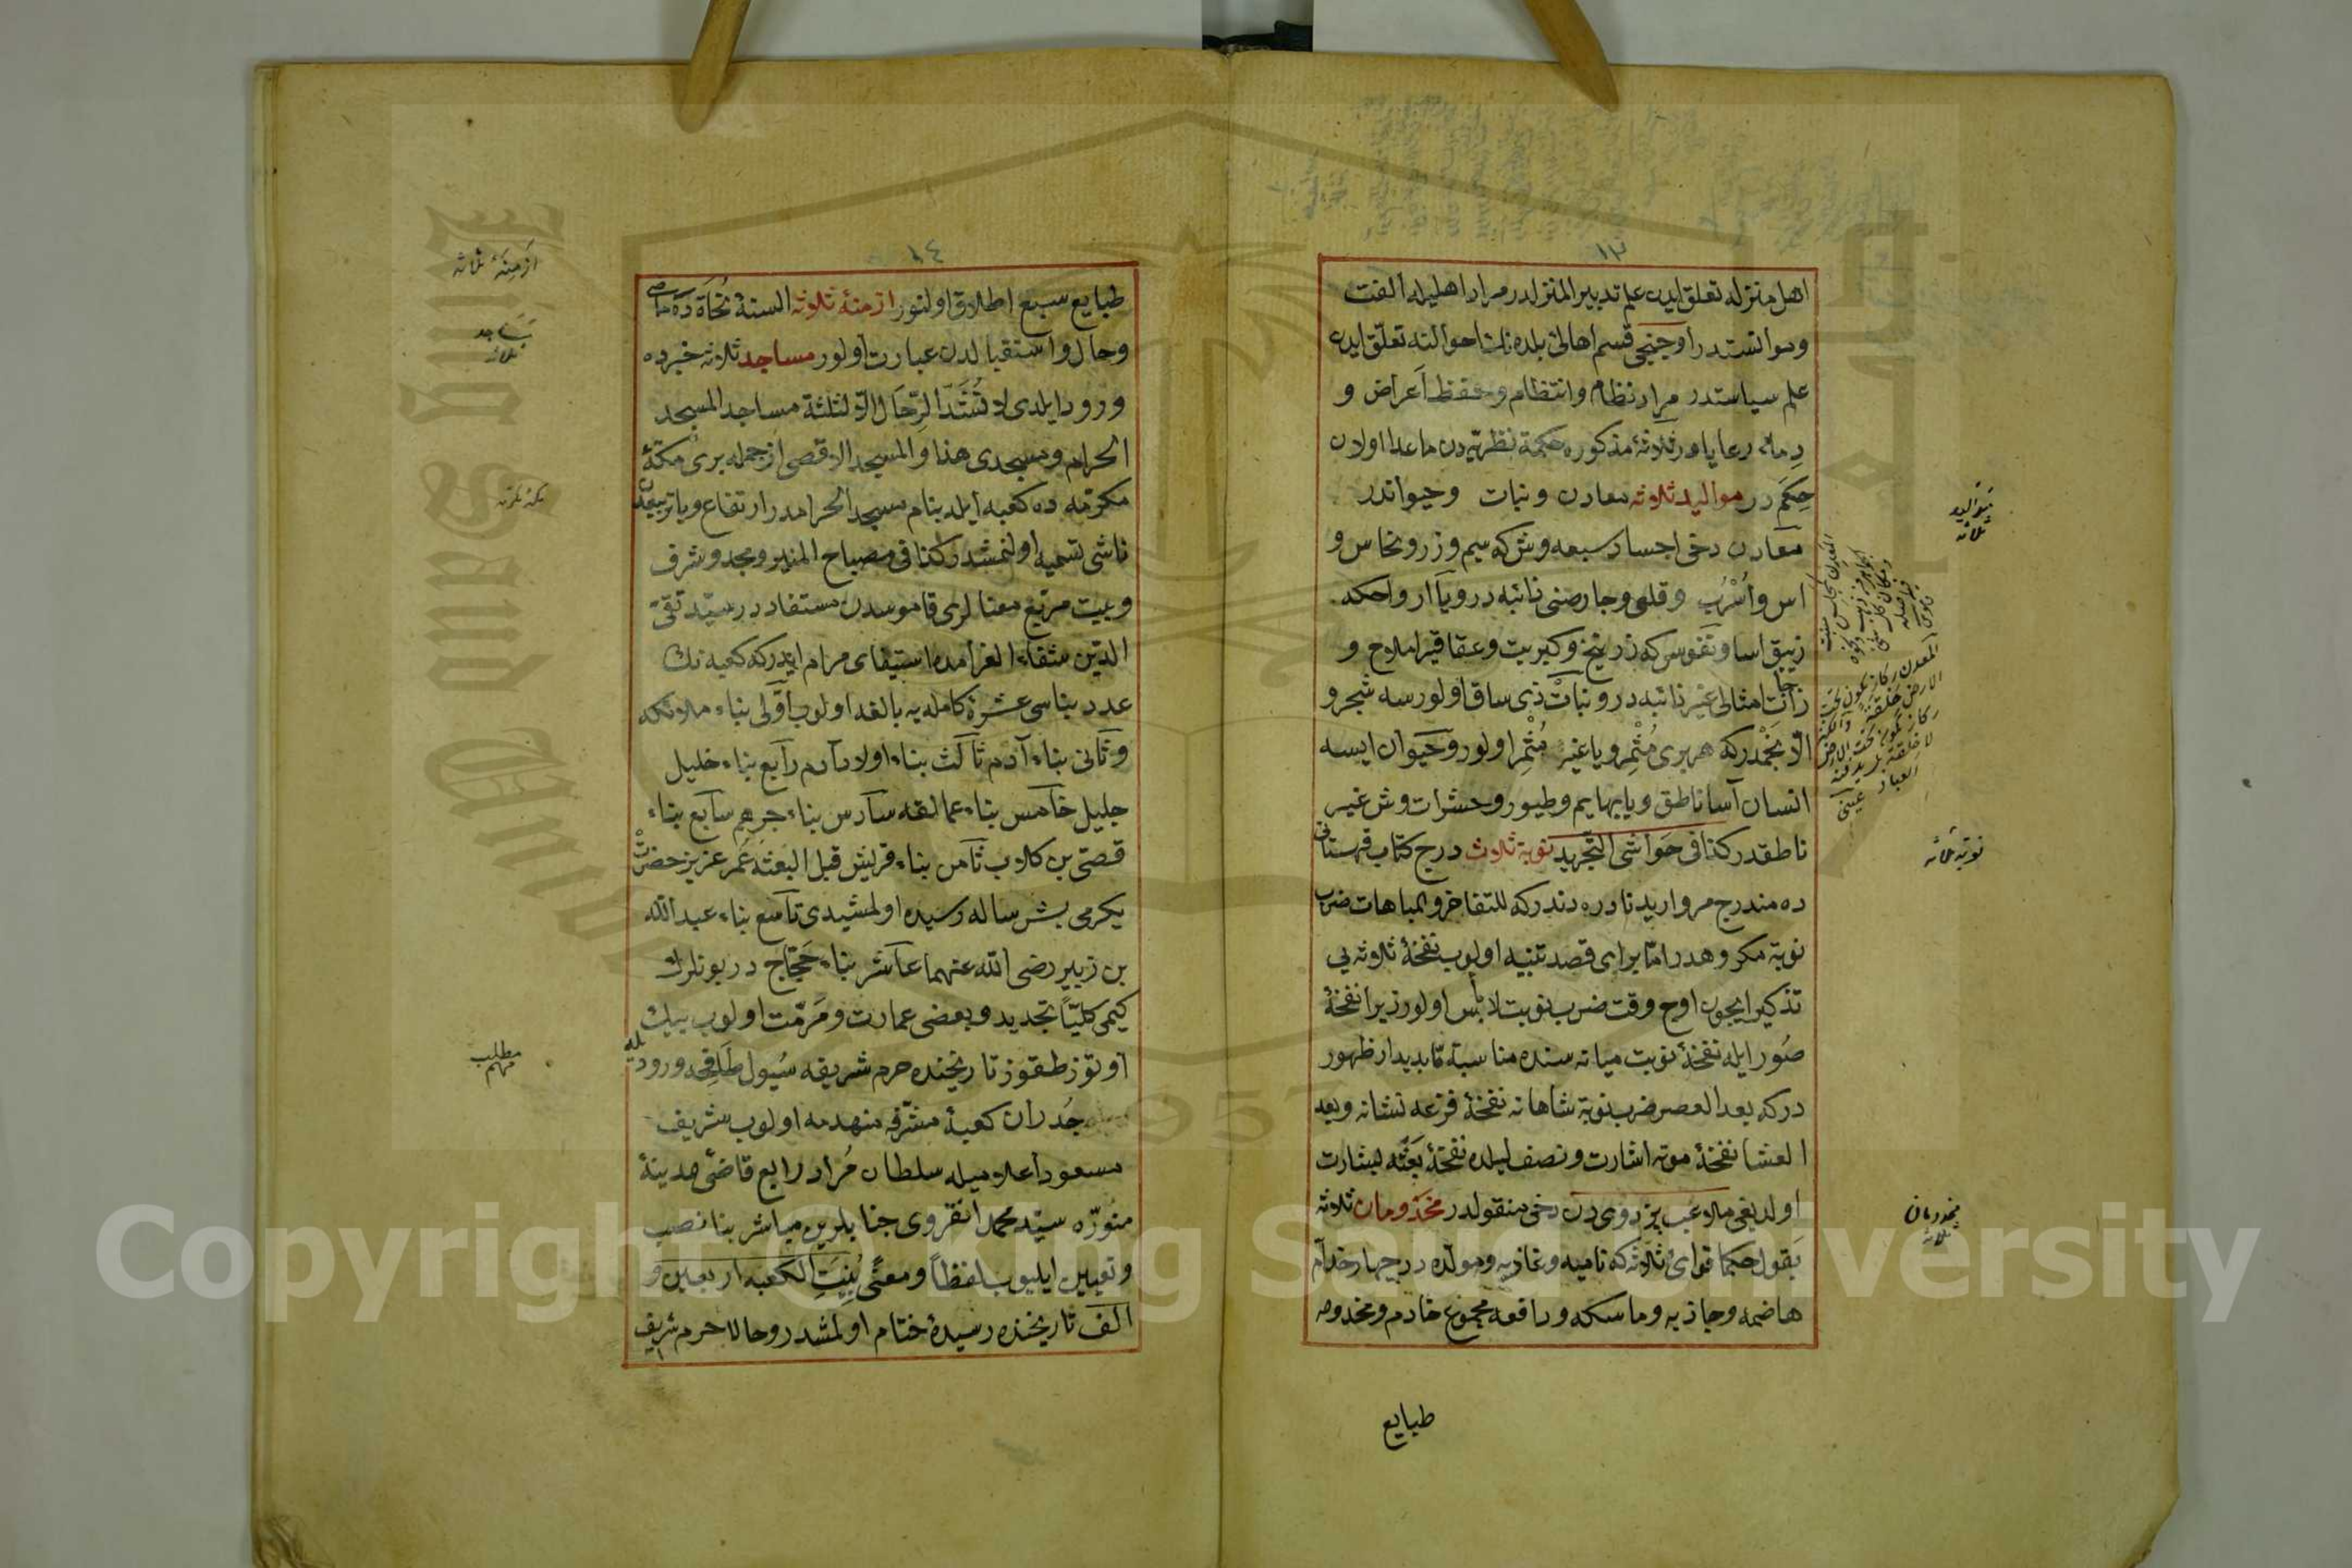 ١٣
اهل منزله تعلق ايدن علم تدبير المنزلدر مراد اهليله الفت
وموانستدر اوچنجى قسم اهالئ بلده نك احوالنه تعلق ايدن
علم سياستدر مراد نظام وانتظام وحفظ اعراض و
دماء رعايادر ثلاثۀ مذكوره حكمة نظريه دن ماعدا اولان
حكم در مواليد ثلاثه معادن ونبات وحيواندر
معادن دخى اجساد سبعه وش كه سيم وزر ونحاس و
اس واسرب وقلعى وخارصنى ذائبه در ويا ارواحكه
زيبق اسا ونفوس كه زرنيخ وكبريت وعقاقير املاح و
زاجات امثالى غير ذائبه در ونبات ذى ساق اولورسه شجر و
الا نجمدركه هر برى مثمر ويا غير مثمر اولور وحيوان ايسه
انسان آسا ناطق ويا بهايم وطيور وحشرات وش غير
ناطقدر كذا فى حواشى التجريد نوبۀ ثلاث درج كتاب قهستانى
ده مندرج مرواريد نادره دندركه للتفاخر والمباهات ضرب
نوبة مكروهدر اما براى قصد تنبيه اولوب نفخۀ ثلاثه يى
تذكير ايچون اوچ وقت ضرب نوبت لا بأس اولور زيرا نفخۀ
صور ايله نفخۀ نوبت ميانه سنده مناسبة تا بديدار ظهور
دركه بعد العصر ضرب نوبة شاهانه نفخۀ فزعه نشانه وبعد
العشا نفخۀ موته اشارت ونصف ليلده نفخۀ بعثه بشارت
اولديغى ملاعب بزدوى دن دخى منقولدر مخدومان ثلاثه
بقول حكما قواى ثلاثه كه ناميه وغاذيه ومولده در چهار خدام
هاضمه وجاذبه وماسكه ودافعه مجموع خادم ومخدومه
طبايع
مواليد
ثلاثه
نوبۀ ثلاثه
مخدومان
ثلاثه
١٤
طبايع سبع اطلاق اولنور ازمنۀ ثلاثه السنۀ نحاة ده ماضى
وحال واستقبالدن عبارت اولور مساجد ثلاثه خبرده
ورود ايلدى لا تشد الرحال الا لثلثة مساجد المسجد
الحرام ومسجدى هذا والمسجد الاقصى از جمله برى مكۀ
مكرمه ده كعبه ايله بنام مسجد الحرامدر ارتفاع ويا تربيعدن
ناشى تسميه اولنمشدر كذا فى مصباح المنير ومجد وشرف
وبيت مربع معنالرى قاموسدن مستفاددر سيد تقى
الدين شفاء الغرامده استيفاى مرام ايدركه كعبه نك
عدد بناسى عشرۀ كامله يه بالغه اولوب اولى بناء ملائكه
وثانى بناء آدم ثالث بناء اولاد آدم رابع بناء خليل
جليل خامس بناء عمالقه سادس بناء جرهم سابع بناء
قصى بن كلاب ثامن بناء قريش قبل البعثه عمر عزيز حضرت
يكرمى بش ساله رسيده اولمشيدى تاسع بناء عبد الله
بن زبير رضى الله عنهما عاشر بناء حجاج در بونلرك
كيمى كليا تجديد وبعضى عمارت ومرمت اولوب بيك
اوتوز طقوز تاريخنده حرم شريفه سيول ورود
جدران كعبۀ مشرفه منهدمه اولوب شريف
مسعود اعلاميله سلطان مراد رابع قاضئ مدينۀ
منوره سيد محمد انقروى جنابلرين مباشر بنا نصب
وتعيين ايليوب لفظا ومعنى بنيت الكعبه اربعين و
الف تاريخنده رسيدۀ ختام اولمشدر وحالا حرم شريف
ازمنۀ ثلاثه
مساجد
ثلاثه
مكۀ مكرمه
مطلب
مهم
Copyright © King Saud University